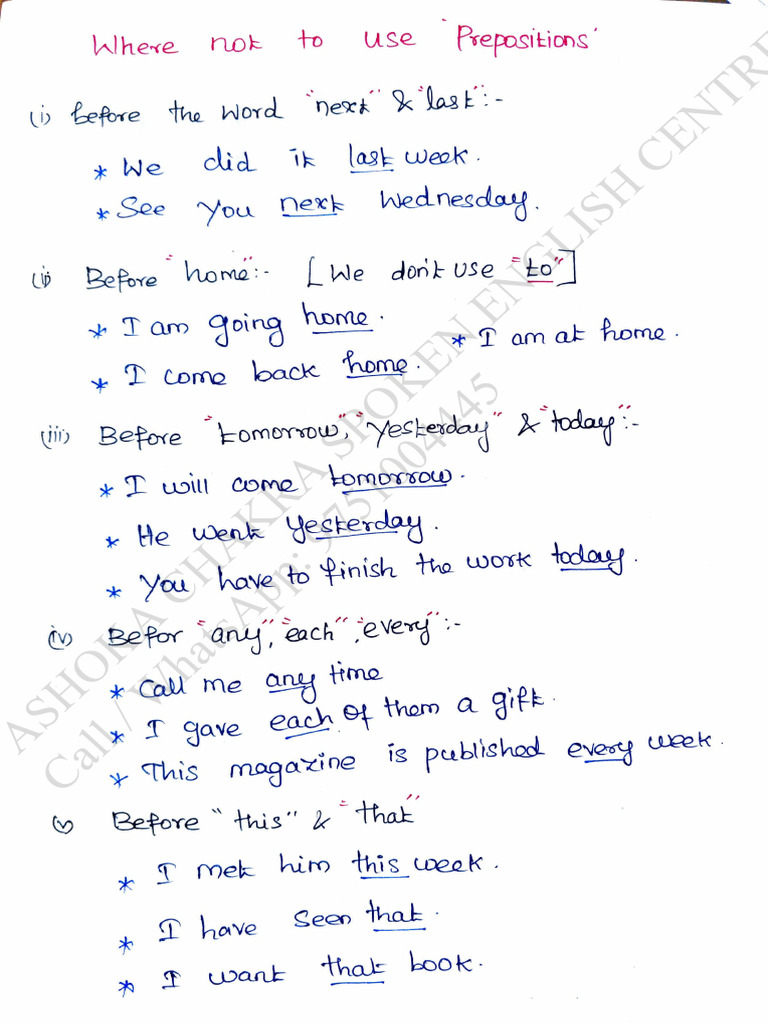 Where not to use "Prepositions"
(i) Before the word "next" & "last":-
* We did it last week.
* See you next Wednesday.
(ii) Before "home":- [We don't use "to"]
* I am going home. * I am at home.
* I come back home.
(iii) Before "tomorrow", "yesterday" & "today":-
* I will come tomorrow.
* He went yesterday.
* You have to finish the work today.
(iv) Befor "any", "each", "every":-
* Call me any time
* I gave each of them a gift.
* This magazine is published every week.
(v) Before "this" & "that"
* I met him this week.
* I have seen that.
* I want that book.
ASHOKA CHAKRA SPOKEN ENGLISH CENTRE
Call / WhatsApp: 9751004445